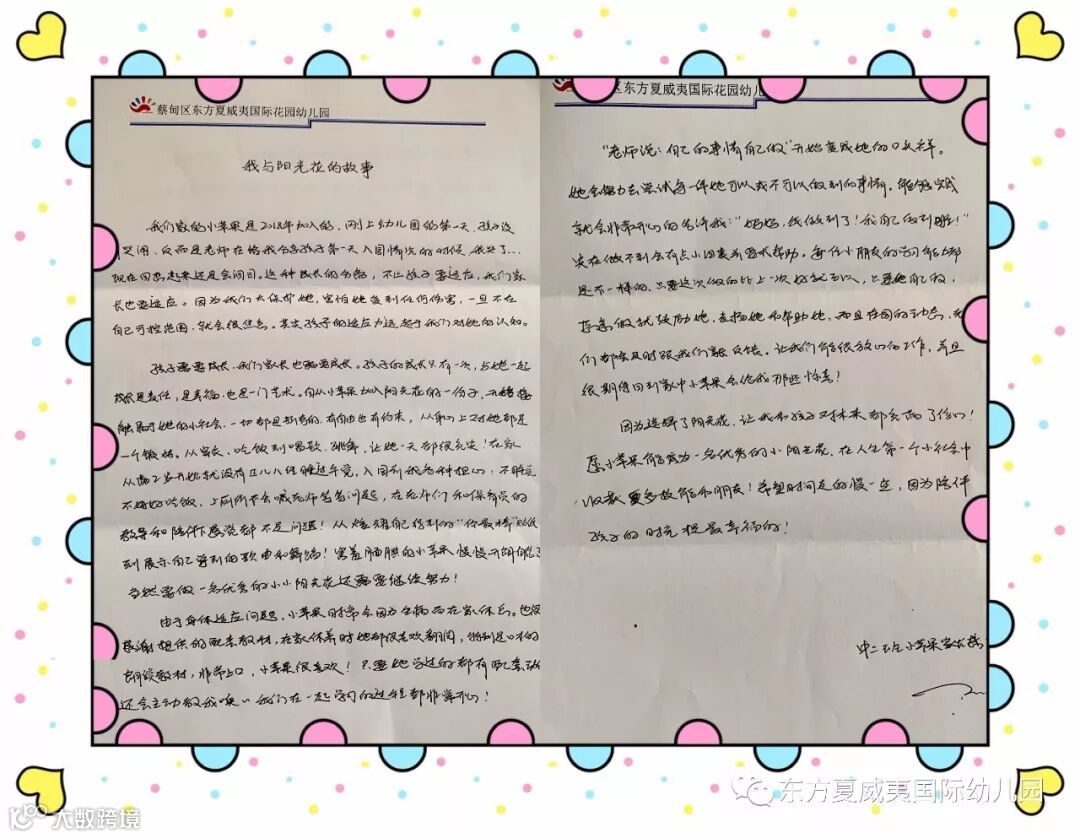 蔡甸区东方夏威夷国际花园幼儿园
我与阳光花的故事
我们家的小苹果是2018年加入的,刚上幼儿园的第一天,孩子没
哭闹,反而是老师在给我分享孩子第一天入园情况的时候,我哭了...
现在回想起来还是会泪目。这种成长的分离,不止孩子要适应,我们家
长也要适应。因为我们太保护她,害怕她受到任何伤害,一旦不在
自己可控范围,就会很焦急。其实孩子的适应力远超于我们对她的认知。
孩子需要成长,我们家长也需要成长。孩子的成长只有一次,与她一起
成长是责任,是幸福,也是一门艺术。自从小苹果加入阳光花的一份子,开始接
触属于她的小社会,一切都是新奇的,有自由也有约束,从身心上对她都是
一个锻炼。从穿衣、吃饭到唱歌、跳舞,让她一天都很充实!在家
从两岁开始就没有正儿八经睡过午觉,入园前我各种担心:不睡觉
不好好吃饭,上厕所不会喊老师等等问题,在老师们和保育员的
教导和陪伴下感觉都不是问题!从炫耀自己得到的“你最棒”
到展示自己学到的歌曲和舞蹈!害羞腼腆的小苹果慢慢开朗
当然要做一名优秀的小小阳光花还需要继续努力!
由于身体适应问题,小苹果时常会因为生病而在家休息。也很
感谢提供的配套教材,在家休养时她都很喜欢翻阅,特别是
朗读教材,非常上口,小苹果很喜欢!只要她学过的都有配套
还会主动教我噢~我们在一起学习的过程都非常开心!
区东方夏威夷国际花园幼儿园
“老师说:自己的事情自己做”开始变成她的口头禅。
她会努力去尝试每一件她可以或不可以做到的事情。能够完成
就会非常开心的告诉我:“妈妈,我做到了!我自己做到哦!”
实在做不到会有点小沮丧并要求帮助。每个小朋友的学习能力都
是不一样的,只要这次做的比上一次好就可以,只要她肯做,
愿意做就鼓励她,表扬她和帮助她,而且在园的动态,老师
们都会及时跟我们家长反馈。让我们能很放心的工作,并且
很期待回到家中小苹果会给我那些惊喜!
因为选择了阳光花,让我和孩子对未来都充满了信心!
愿小苹果能成为一名优秀的小阳光花,在人生第一个小社会中
收获更多技能和朋友!希望时间走的慢一点,因为陪伴
孩子的时光很最幸福的!
中二班小苹果家长
东方夏威夷国际幼儿园
大数跨境